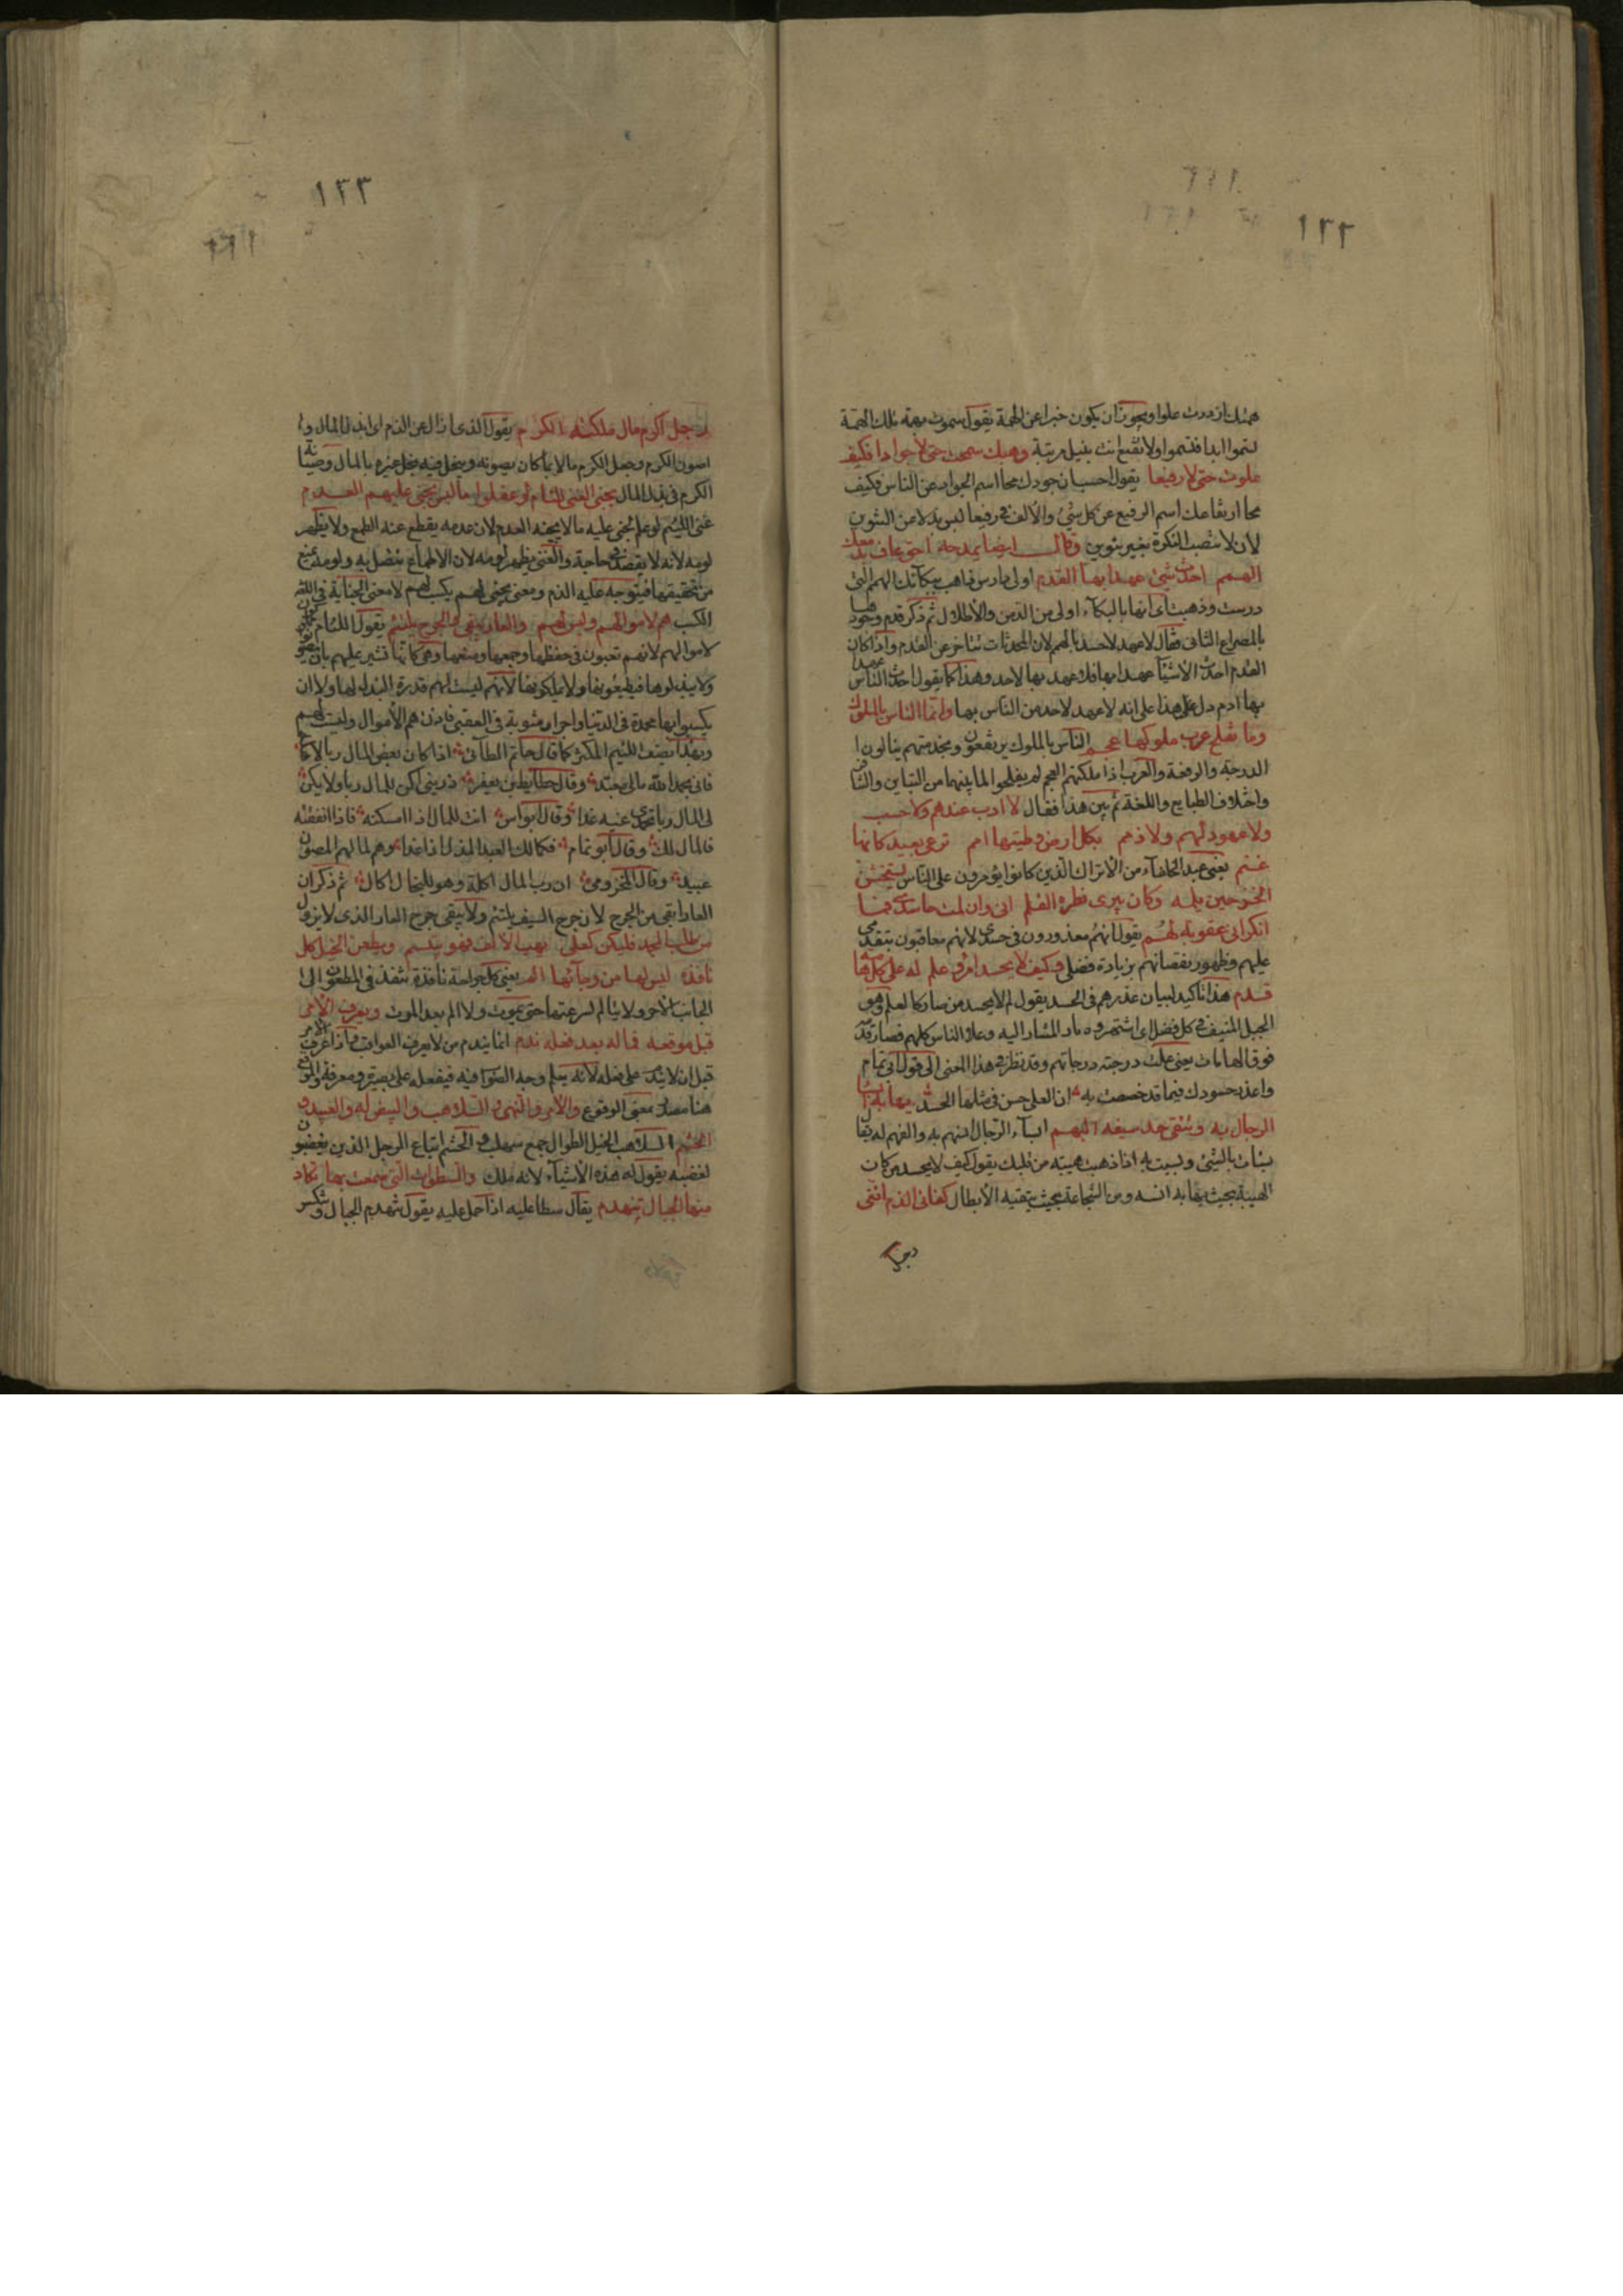 ١٢٢
همتك ازددت علوا ويجوز ان يكون خبرا عن الهمة يقول سموت بهمة تلك الهمة
لتسموا ابدا فتسموا ولا تقنع انت بنيل مرتبة وهبك سمحت حتى لا جوادا فكيف
علوت حتى لا رفيعا يقول احسب ان جودك محا اسم الجواد عن الناس فكيف
محا ارتفاعك اسم الرفيع عن كل شئ والالف في رفيعا ليس بدلا من التنوين
لان لا تنصب النكرة بغير تنوين وقال ايضا يمدحه احق عاف بدمعك
الهمم احدث شئ عهدا بها القدم اولى دارس ذاهب ببكائك الهمم التي
درست وذهبت اى انها بالبكاء اولى من الدمن والاطلال ثم ذكر قدم وجودها
بالمصراع الثانى فقال لا عهد لاحد بالهمم لان المحدثات تتاخر عن القدم واذا كان
القدم احدث الاشياء عهدا بها فلا عهد بها لاحد وهذا كما يقول احدث الناس عهدا
بها ادم دل على هذا على انه لا عهد لاحد من الناس بها وانما الناس بالملوك
وما تفلح عرب ملوكها عجم الناس بالملوك يرتفعون وبخدمتهم ينالون ا
الدرجة والرفعة والعرب اذا ملكتهم العجم لم يفلحوا لما بينهما من التباين والتنافى
واختلاف الطبايع واللغة ثم بين هذا فقال لا ادب عندهم ولا حسب
ولا عهود لهم ولا ذمم بكل ارض وطئتها امم ترعى بعبد كانها
غنم يعنى عبد الخلفاء من الاتراك الذين كانوا يؤمرون على الناس يستخشن
الخز حين يلمسه وكان يبرى بظفره القلم انى وان لمت حاسدى فما
انكر انى عقوبة لهم يقول انهم معذورون في حسدى لانهم معاقبون بتقدمى
عليهم وظهور نقصانهم بزيادة فضلى وكيف لا يحسد امرؤ علم له على كل هامة
قدم هذا تاكيد لبيان عذرهم في الحسد يقول لم لا يحسد من صار كالعلم وهو
الجبل المنيف في كل فضل اى اشتهر وصار المشار اليه وعلا الناس كلهم فصار قدمه
فوق الهامات يعنى علت درجته درجاتهم وقد نظر في هذا المعنى الى قول ابى تمام
واعذر حسودك فيما قد خصصت به ان العلى حسن في مثلها الحسد يهابه ابسا
الرجال به وتتقى حد سيفه البهم ابساء الرجال انسهم به والفهم له يقال
بسات بالشئ وبسيت به اذا ذهبت هيبته من قلبك يقول كيف لا يحسد من كان
الهيبة بحيث يهابه انسه ومن الشجاعة بحيث يتقيه الابطال كفانى الذم اننى
رجل
١٢٣
رجل اكرم مال ملكته الكرم يقول الذى ازال عنى الذم اى ابذل المال وا
اصون الكرم وجعل الكرم مالا لما كان يصونه ويبخل فيه بخل غيره بالمال وصيانة
الكرم في بذل المال يجنى الغنى للئام لو عقلوا ما ليس يجنى عليهم العدم
غنى اللئيم لو علم يجنى عليه ما لا يجنيه العدم لان عدمه يقطع عنه الطمع ولا يظهر
لومه لانه لا يقصد في حاجة والغنى يظهر لومه لان الاطماع تتصل به ولومه يمنع
من تحقيقها فيتوجه عليه الذم ومعنى يجنى لهم يكسب لهم لا معنى الجناية في اللغة
الكسب هم لاموالهم ولسن لهم والعار يبقى والجرح يلتئم يقول اللئام مملوكون
لاموالهم لانهم تعبون في حفظها وجمعها ومنعها وهى كانها تشير عليهم بان يصونوا
ولا يبذلوها فيطيعونها ولا يملكونها لانهم ليست لهم قدرة البذل لها ولا ان
يكسبوا بها محمدة في الدنيا واحراز مثوبة في العقبى فاذن هم الاموال وليست لهم
وبهذا يصف اللئيم المكثر كما قال حاتم الطائى اذا كان بعض المال ربا لاهله
فانى بحمد الله مالى معبد وقال حطائط بن يعفر ذرينى اكن للمال ربا ولا يكن
لى المال ربا تحمدى غبه غدا وقال ابو نواس انت للمال اذا امسكته فاذا انفقته
فالمال لك وقال ابو تمام فكمالك العبد المذل اذا غدا وهم لمالهم المصون
عبيد وقال المخزومى ان رب المال اكله وهو للبخال اكال ثم ذكر ان
العار ابقى من الجرح لان جرح السيف يلتئم ولا يبقى جرح العار الذى لا يزول
من طلب المجد فليكن كعلى يهب الالف فهو يبتسم ويطعن الخيل كل
نافذة ليس لها من وحائها الم يعنى كل جراحة نافذة تنفذ في المطعون الى ا
الجانب الاخر ولا يتالم لسرعتها حتى يموت ولا الم بعد الموت ويعرف الامر
قبل موقعه فما له بعد فعله ندم انما يندم من لا يعرف العواقب فاذا عرف الامر
قبل ان لا يندم على فعله لانه يعلم وجه الصواب فيه فيفعله على بصيرة ومعرفة والموقع
هنا مصدر بمعنى الوقوع والامر والنهى والسلاهب والبيض له والعبيد و
الحشم السلاهب الخيل الطوال جمع سهلب والحشم اتباع الرجل الذين يغضبون
لغضبه يقول له هذه الاشياء لانه ملك والسطوات التى سمعت بها تكاد
منها الجبال تنهدم يقال سطا عليه اذا حمل عليه يقول تهدم الجبال وتنكسر